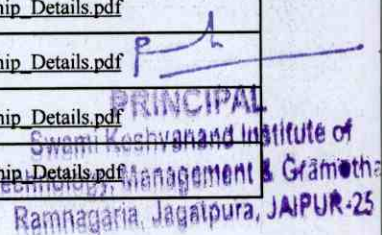 hip_Details.pdf
hip_Details.pdf
hip_Details.pdf
PRINCIPAL
Swami Keshvanand Institute of
hip_Details.pdf
echnology, Management & Gramotha
Ramnagaria, Jagatpura, JAIPUR-25